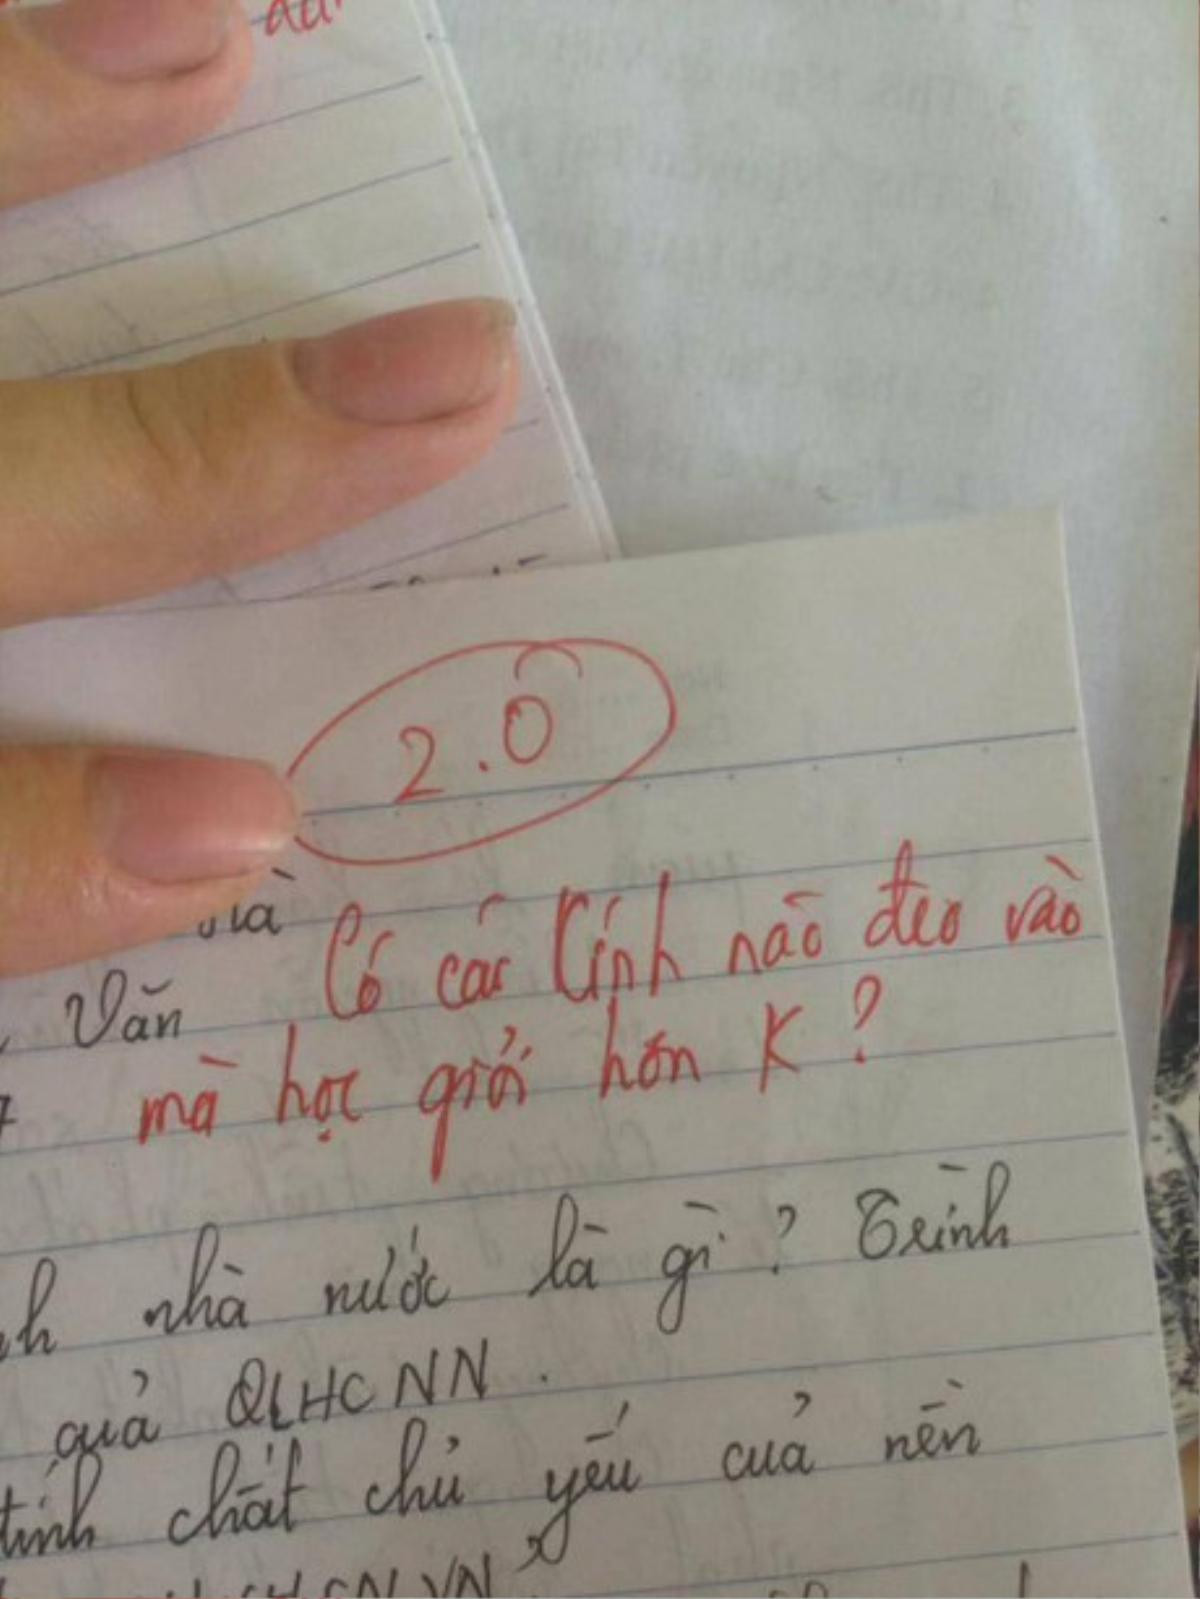 2.0
Có cái kính nào đeo vào
Văn
mà học giỏi hơn K?
nhà nước là gì? Trình
quả QLHCNN.
tính chất chủ yếu của nền